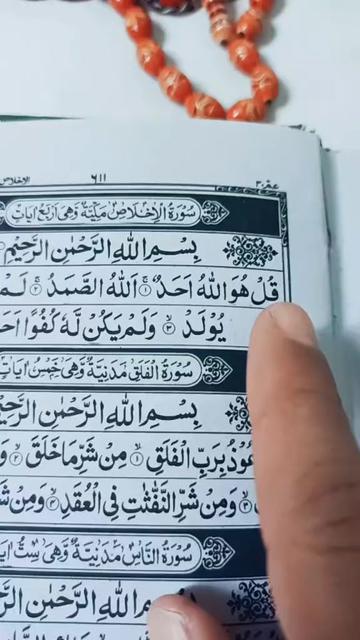 عمّ ٣٠ ٦١١ الاخلاص
سُوْرَةُ الْاِخْلَاصِ مَكِّيَّةٌ وَّهِىَ اَرْبَعُ اٰيَاتٍ
بِسْمِ اللهِ الرَّحْمٰنِ الرَّحِيْمِ
قُلْ هُوَ اللهُ اَحَدٌ ۚ ١ اَللهُ الصَّمَدُ ۚ ٢ لَمْ
يُوْلَدْ ۙ ٣ وَلَمْ يَكُنْ لَّهٗ كُفُوًا
سُوْرَةُ الْفَلَقِ مَدَنِيَّةٌ وَّهِىَ خَمْسُ اٰيَاتٍ
بِسْمِ اللهِ الرَّحْمٰنِ
عُوْذُ بِرَبِّ الْفَلَقِ ۙ ١ مِنْ شَرِّ مَا خَلَقَ ۙ ٢
٣ وَمِنْ شَرِّ النَّفّٰثٰتِ فِى الْعُقَدِ ۙ ٤ وَمِنْ
سُوْرَةُ النَّاسِ مَدَنِيَّةٌ وَّهِىَ سِتُّ
اللهِ الرَّحْمٰنِ